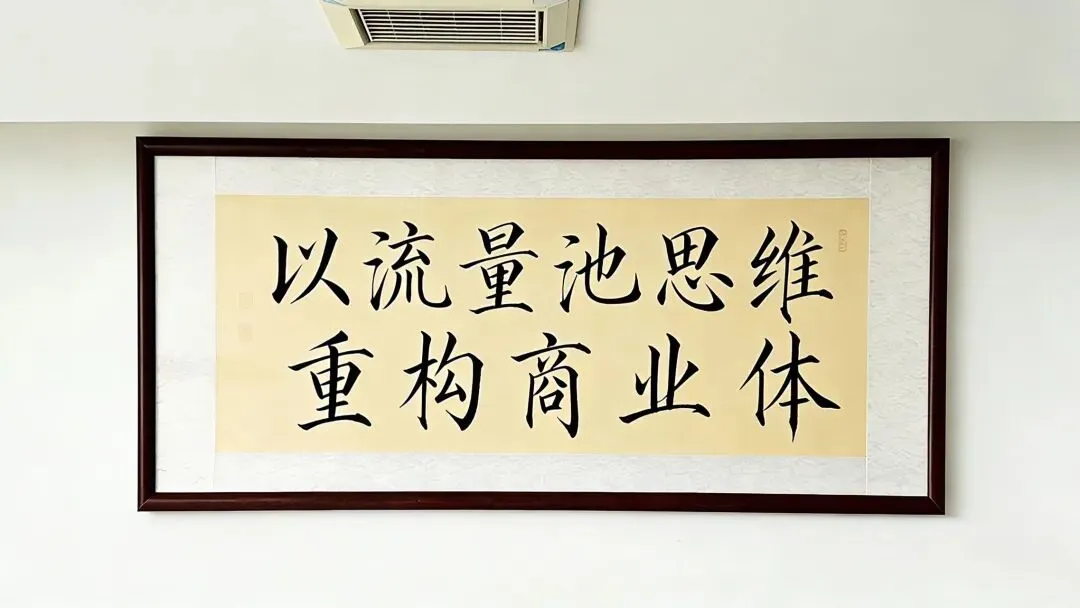 以流量池思维
重构商业体